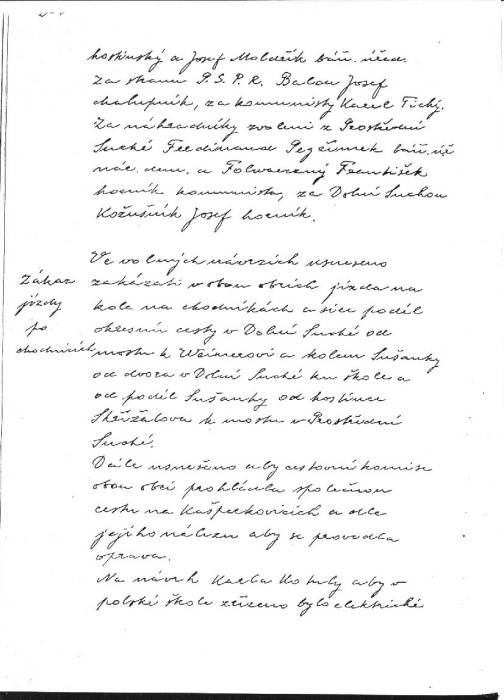 hostinský a Josef Molděík báň. úřed.
Za stranu P.S.P.R. Balon Josef
chalupník, za komunisty Karel Tichý.
Za náhradníky zvoleni z Prostřední
Suché Ferdinand báň. úř
nár. dem. a Folwarczný František
horník komunista, za Dolní Suchou
Kožušník Josef horník.
Ve volných návrzích usneseno
zakázati v obou obcích jízda na
kole na chodnikách a sice podél
okresní cesty v Dolní Suché od
mostu k Weimerovi a kolem Sušanky
od dvora v Dolní Suché ku škole a
od podél Sušanky od hostince
Střížalova k mostu v Prostřední
Suché.
Zákaz
jízdy
po
chodnicích
Dále usneseno aby cestovní komise
obou obcí prohlédla společnou
cestu na Kašpárkovicích a dle
jejího nálezu aby se provedla
oprava.
Na návrh Karla Kotuly aby v
polské škole zřízeno bylo elektrické